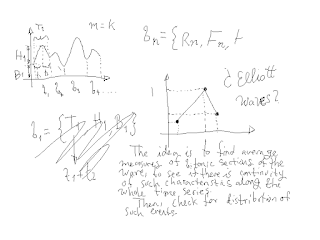 T₁ m = k
H₁
B₁
t₁ t₂
q_n = {R_n, F_n, t
1
¿ Elliott
waves?
b₁ = {T₁ H₁ B₁}
t₁ t₂
The idea is to find average
measures of bitonic sections of the
wave to see if there is continuity
of such characteristics along the
whole time series.
Then, check for distribution of
such events.